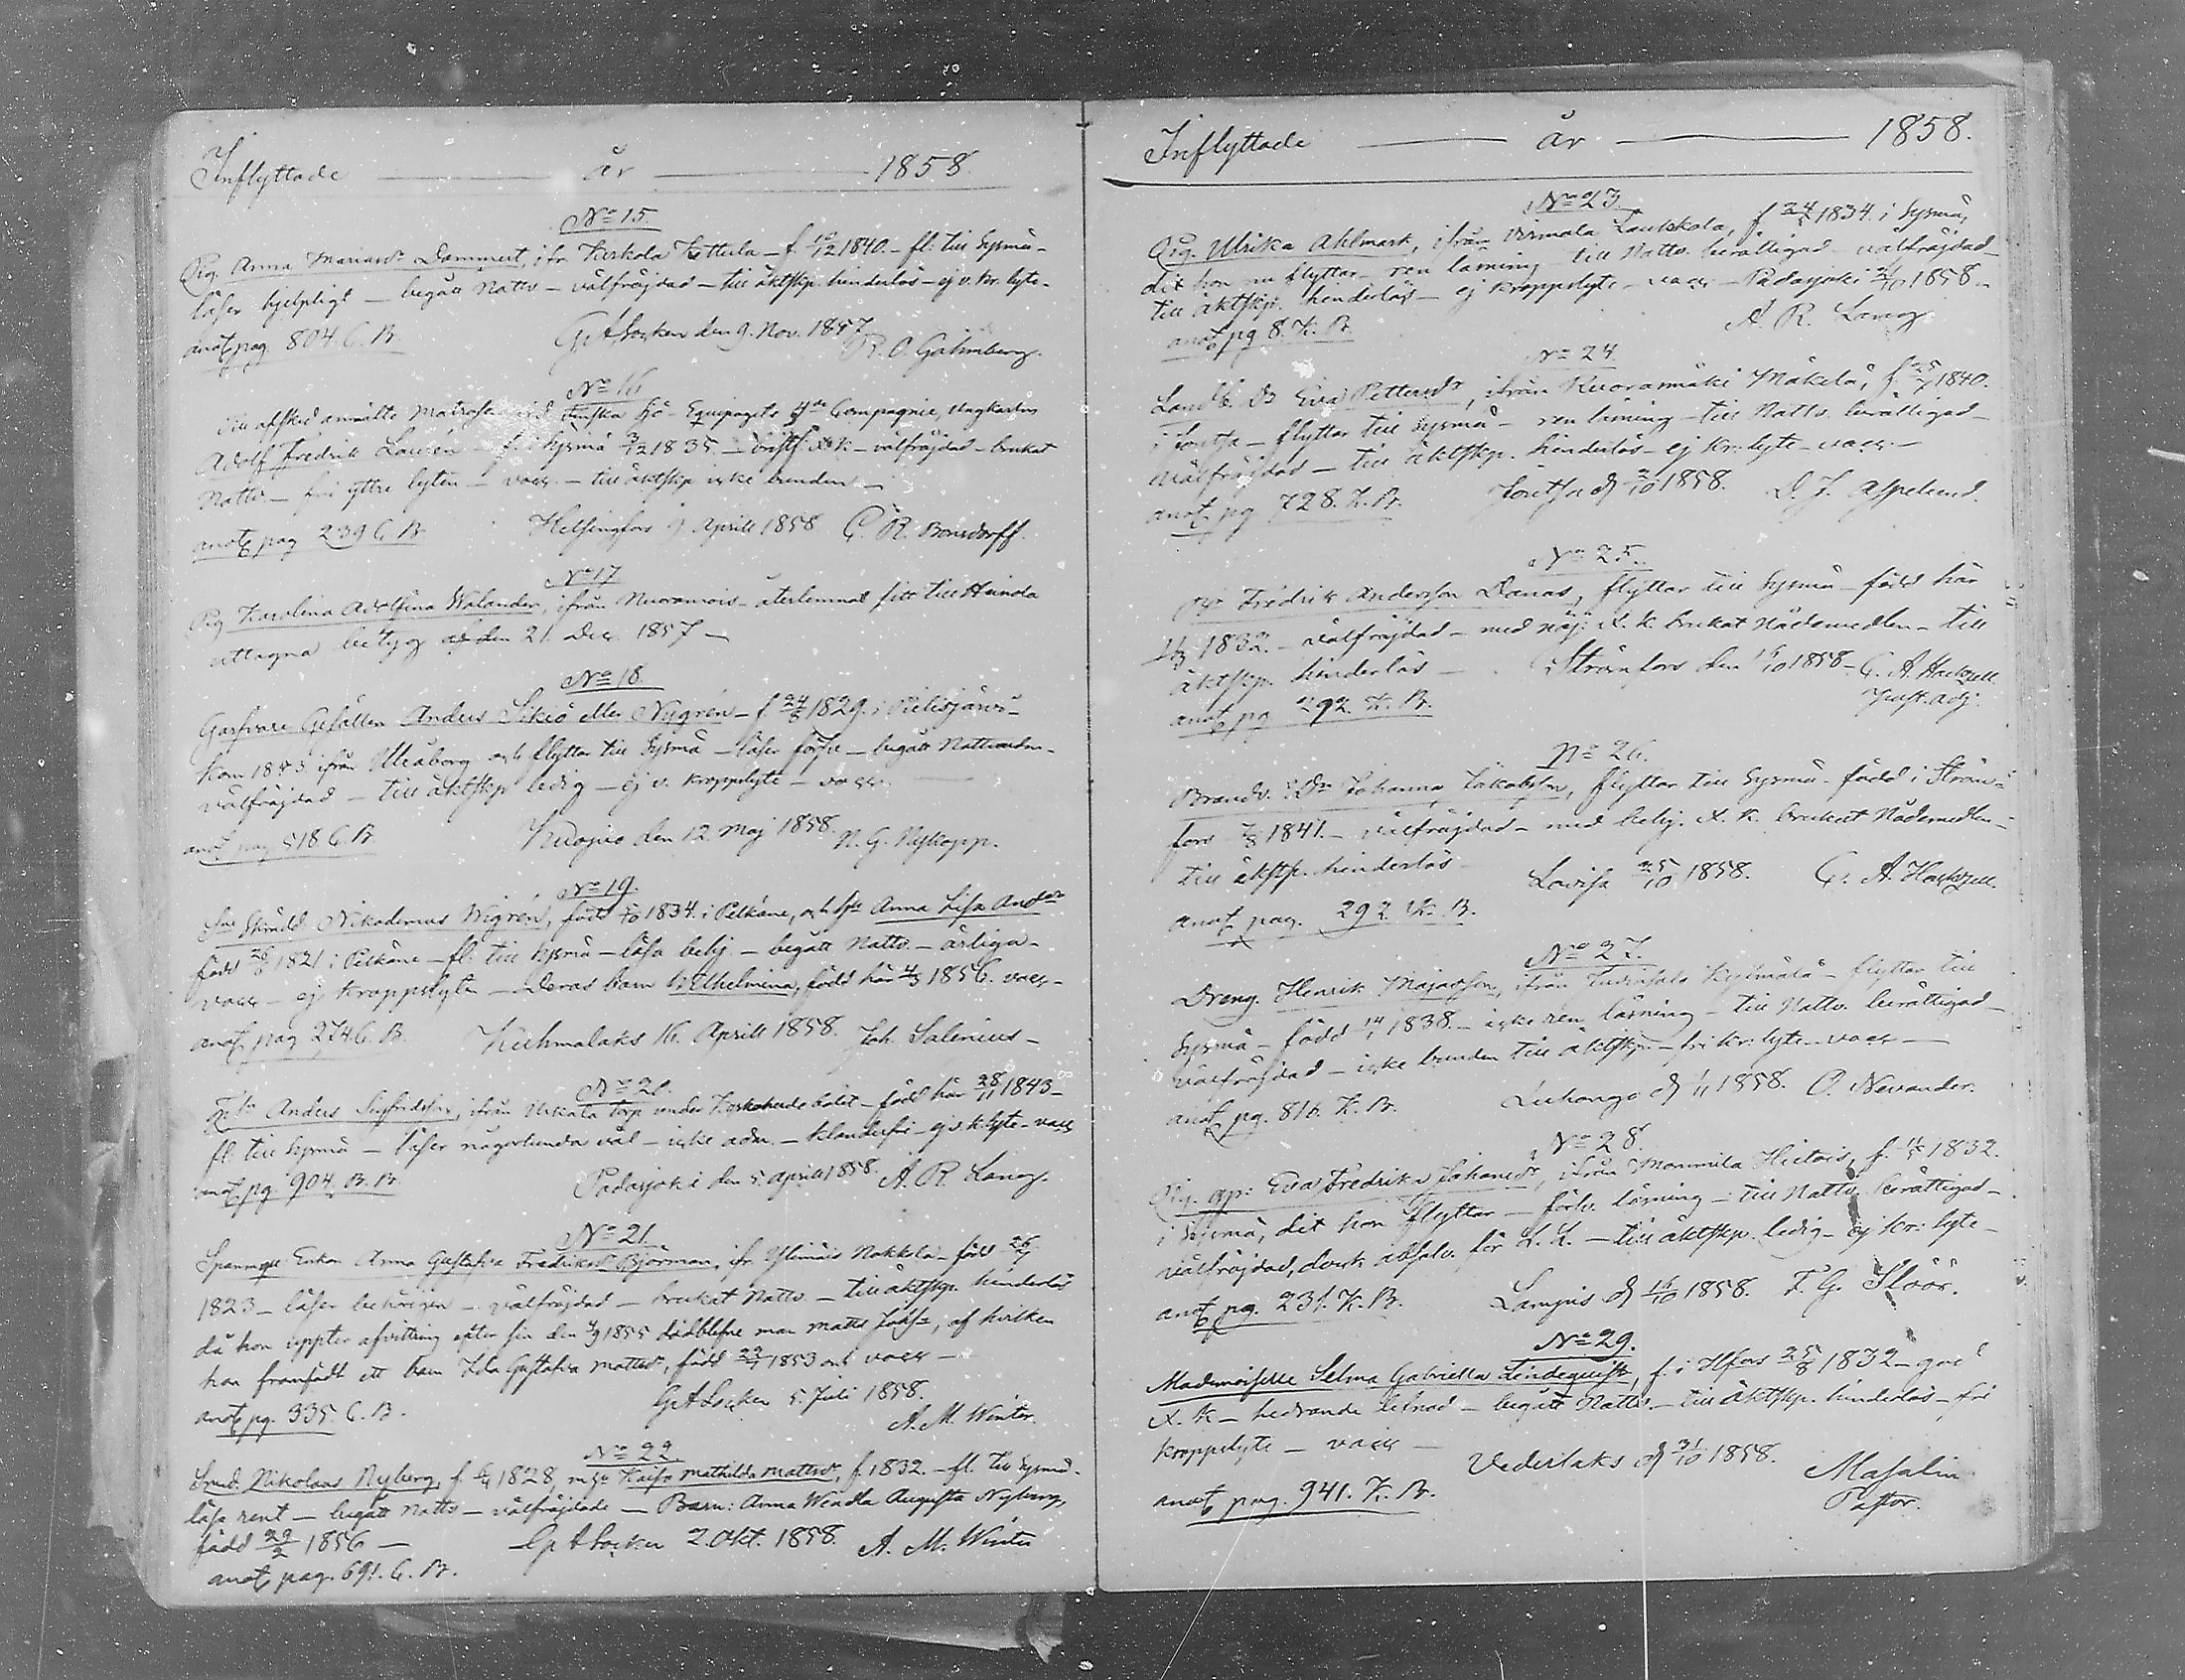 Inflyttade — år — 1858
No 15.
Pig. Anna Mariasdr Dammert, ifr. Kerkola Kettula – f. 12/12 1840. – fl. till Sysmä –
läser hjelpligt – begått Nattv. – välfräjdad – till äktskp. hinderlös – ej v. kr. lyte –
anot. pag. 804. C. B. G:A Socken den 9. Nov. 1857 R. O. Gahmberg.
No 16
Till afsked anmälte Matrosen vid Finska Sjö-Equipagets Compagnie, Ungkarlen
Adolf Fredrik Lawén f. i Sysmä 1835 – – välfräjdad – brukat
Nattv. – fri yttre lyten – vacc. – till äktskp icke bunden –
anot. pag 239 C. B. Helsingfors 7 Aprill 1858 C. R. Bonsdorff.
No 17
Pig. Karolina Adolfina Walander, ifrån Nuoramois – återlemnat sitt till Heinola
uttagna betyg af den 21. Dec. 1857 –
No 18.
Garfvare Gesällen Anders Sikiö eller Nygrén – f. 24/8 1829. i Pielisjärvi –
kom 1853. ifrån Uleåborg och flyttar till Sysmä – läser förse – begått Nattvarden –
välfräjdad – till äktskp ledig – ej v. kroppslyte – vacc.
anot. pag 518 C. B. Kuopio den 12. Maj 1858. N. G. Nykopp.
No 19.
Skrädd. Nikodemus Wigrén, född 1834. i Pelkäne, och h:u Anna Lisa And:dr
född 1821 i Pelkäne – fl. till Sysmä – läsa behj. – begått Nattv. – ärliga –
vacc – ej kroppslyten – Deras barn Wilhelmina, född här 4/3 1856. vacc –
anot. pag 274 C. B. Kuhmalaks 16. Aprill 1858. Joh. Salenius –
No 20.
Anders Sigfridsson, ifrån Urkala torp under – född här 28/11 1843 –
fl. till Sysmä – läser någorlunda väl – icke adm. – klanderfri – ej v. k. lyte – vacc
anot. pg. 904. B. B. Padasjoki den 5. Aprill 1858. A. R. Lang.
No 21.
Enkan Anna Gustafva Fredriksdr Björman, ifr. Ylimäis Nokkola – född
1823 – läser behörigen – välfräjdad – brukat Nattv. – till äktskp. hinderlös
då hon uppter afvittring efter sin den 4/9 1855 dödblefne man Matts, af hvilken
hon framfödt ett barn Ida Gustafva Mattsdr, född 22/7 1853 och vacc –
anot. pg. 335 C. B. G:A Socken 5. Juli 1858. A. M. Winter.
No 22
Smed. Nikolaus Nyberg, f. 1828, m. h:u Kaisa Mathilda Mattsdr, f. 1832. – fl. till Sysmä –
läsa rent – begått Nattv – välfräjdade – Barn: Anna Wendla Augusta Nyberg,
född 22/2 1856 – G:A Socken 2. Okt. 1858. A. M. Winter
anot. pag. 691. C. B.
Inflyttade — år — 1858.
No 23.
Pig. Ulrika Ahlmark, ifrån Virmala Laukkola, f. 24/ 1834. i Sysmä,
dit hon nu flyttar – ren läsning – till Nattv. berättigad – välfräjdad –
till äktskp. hinderlös – ej kroppslyte – vacc – Padasjoki 1858 –
anot. pg 8. K. B. A. R. Lang.
No 24.
Landb. Dr Eva Pettersdr, ifrån Ruoramäki Mäkelä, f. 25/ 1840.
i Joutsa – flyttar till Sysmä – ren läsning – till Nattv. berättigad –
välfräjdad – till äktskp. hinderlös – ej kr: lyte – vacc –
anot. pg 728. K. B. Joutsa d. 2/10 1858. D. J. Aspelund.
No 25.
Fredrik Andersson Danas, flyttar till Sysmä – född här
1832. – välfräjdad – med nöj. X. k. brukat Nådemedlen – till
äktskp. hinderlös – Strömfors den 1/10 1858 – C. A. Hackzell
anot. pg. 292. K. B. Past. adj.
No 26.
Brandv. Dr Johanna Jakobsson, flyttar till Sysmä – född i Ström-
fors 1841. – välfräjdad – med behj. X. k. brukat Nådemedlen –
till äktskp. hinderlös Lovisa 25/10 1858. C. A. Hackzell.
anot. pag. 292. K. B.
No 27.
Dreng. Henrik Majasson, ifrån Kyllmälä – flyttar till
Sysmä – född 14/ 1838. – icke ren läsning – till Nattv. berättigad –
välfräjdad – icke bunden till äktskp – fri kr: lyte – vacc –
anot. pg. 816. K. B. Luhango d. 1/11 1858. O. Nevander.
No 28.
Pig. Eva Fredrika Johansdr, ifrån Mommila Hietois, f. 1832.
i Sysmä, dit hon flyttar – förlr. läsning – till Nattv. berättigad –
välfräjdad, dock absolv. för L. L. – till äktskp. ledig – ej kr: lyte –
anot. pg. 231. K. B. Lampis d. 16/10 1858. F. G. Flöör.
No 29.
Mademoiselle Selma Gabriella Lindequist, f. i Hfors 25/8 1832 – god
X. K – hedrande lefnad – begått Nattv. – till äktskp. hinderlös – fri
kroppslyte – vacc –
anot. pag. 941. K. B. Vederlaks d. 31/10 1858. Masalin
Pastor.